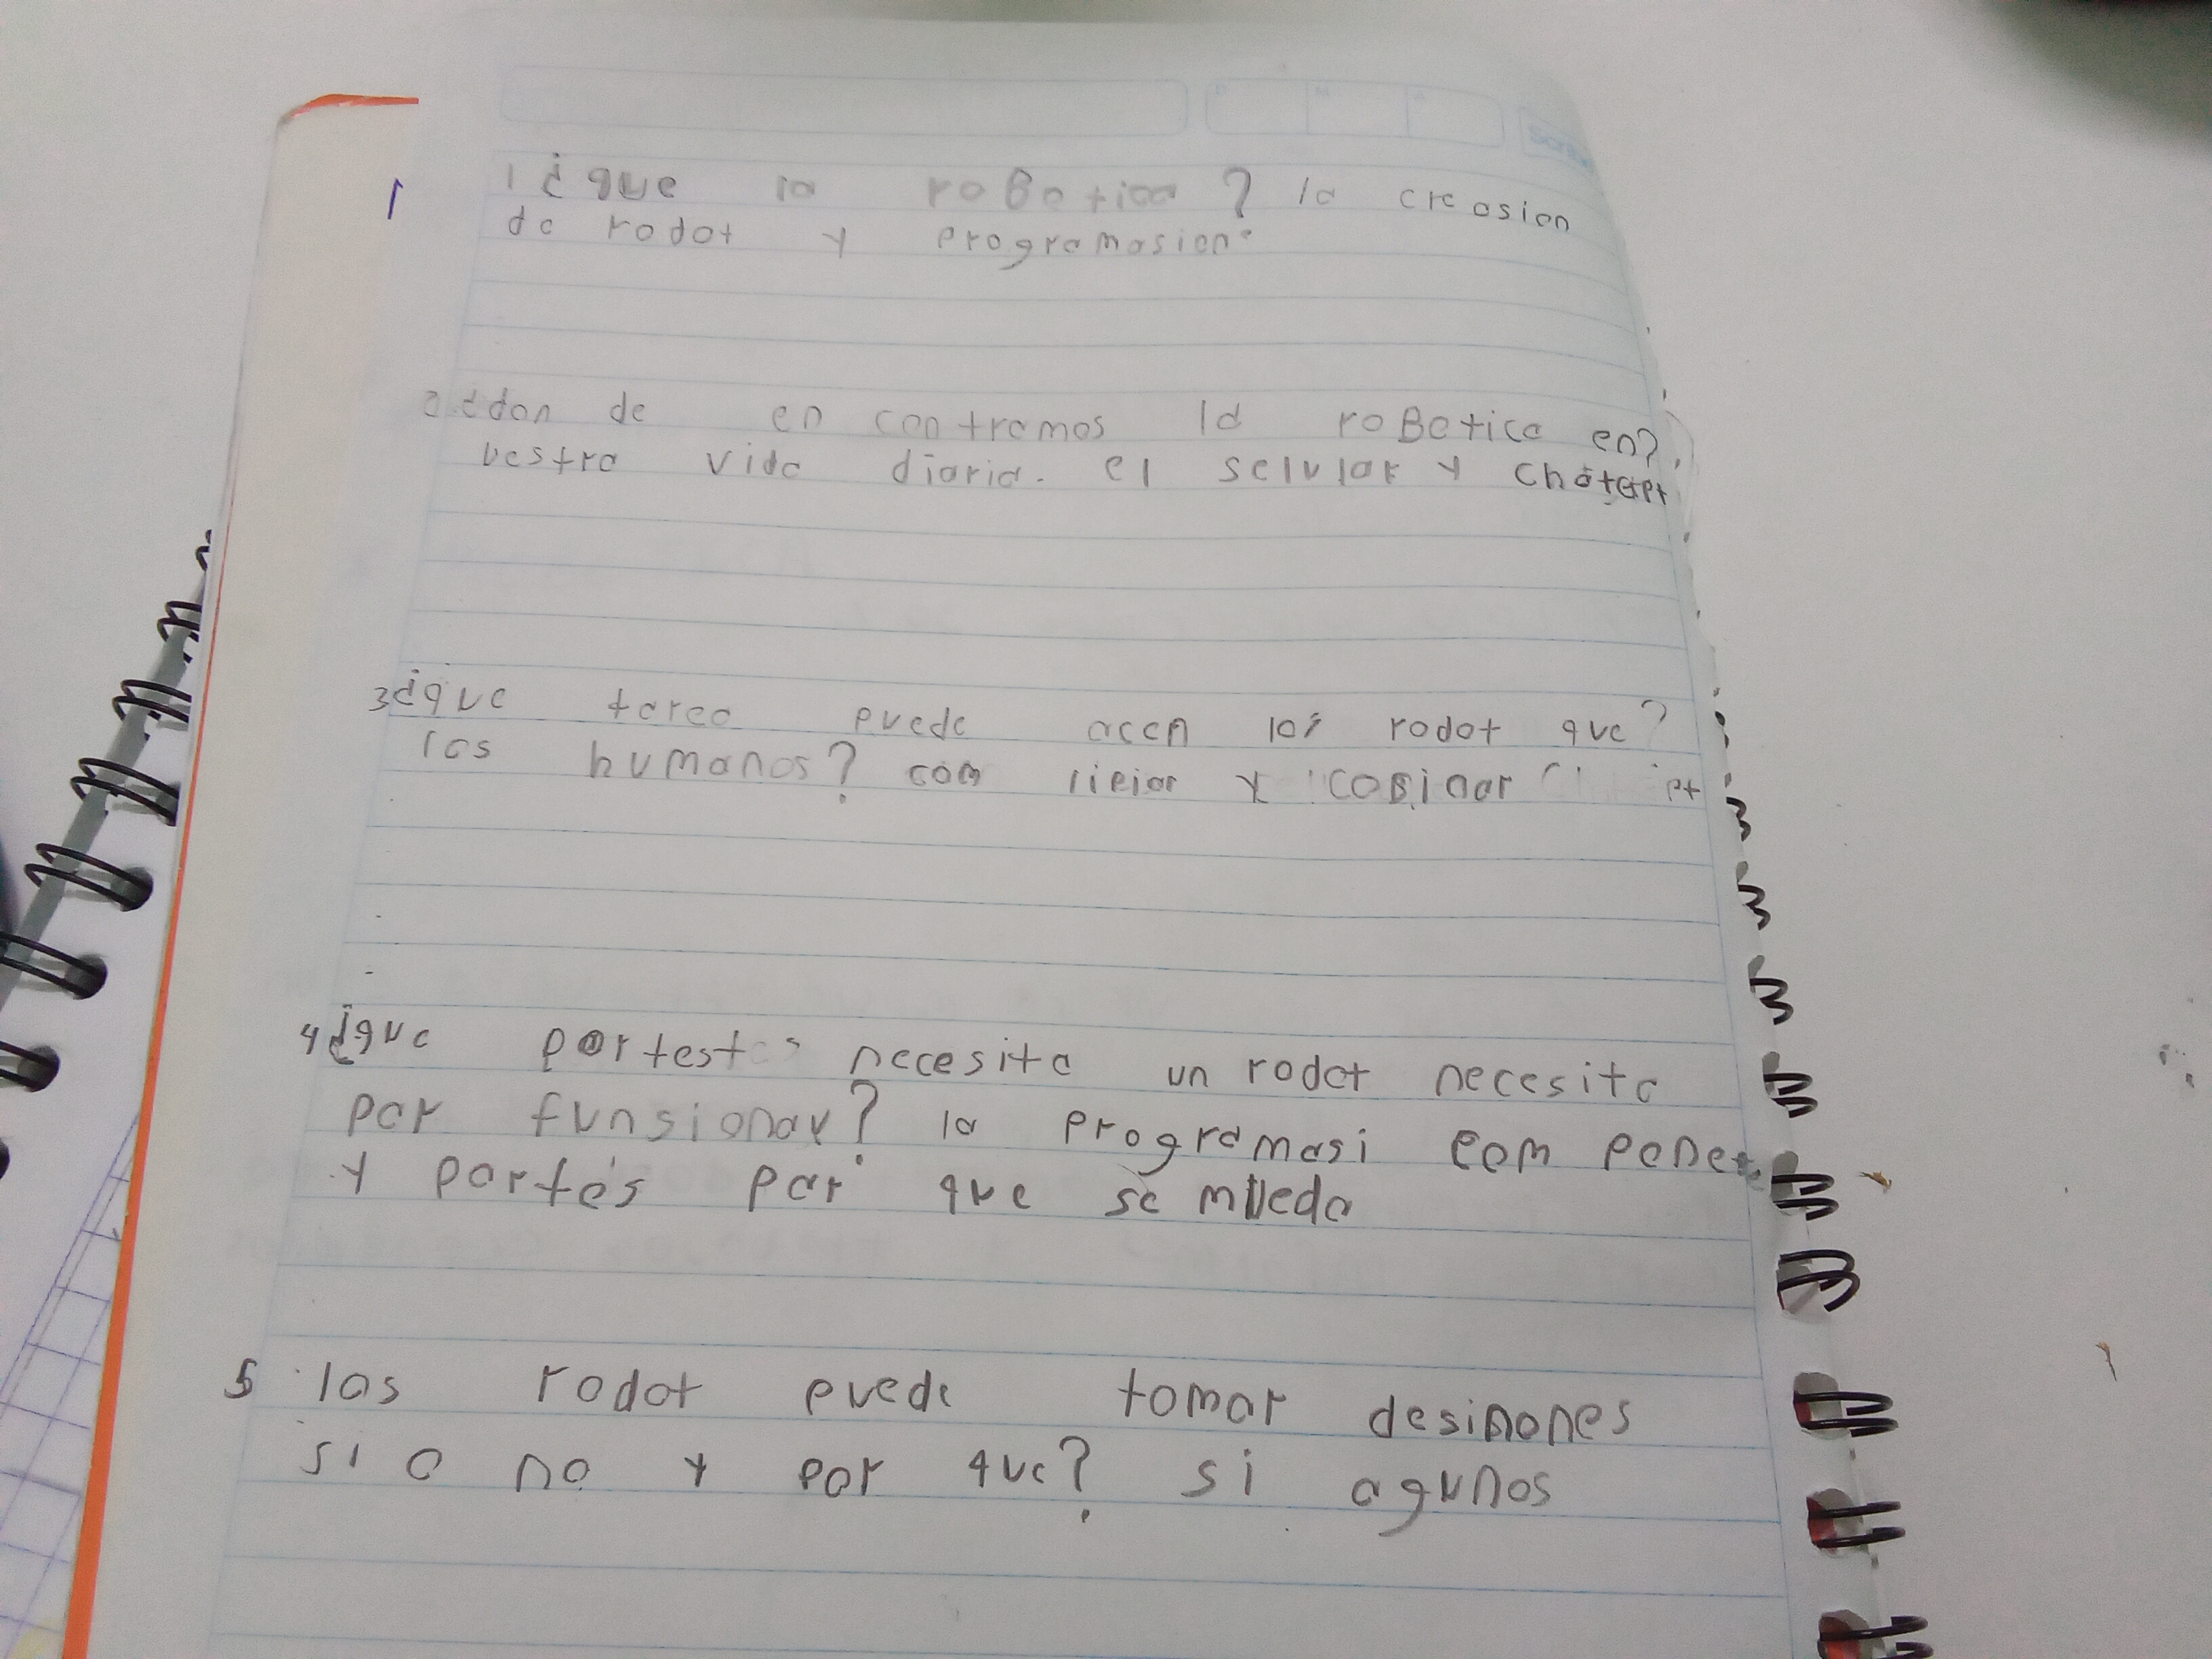 1
1 ¿que la roBotica? la creasion
de rodot y programasion.
2 ¿don de en contramos la roBotica en?
uestra vida diaria. el selular y chatGpt
3 ¿que tarea puede acen los rodot que?
los humanos? com lipiar y cosinar
4 ¿que partes necesita un rodot necesita
par funsionar? la programasi com ponet
y partes par que se mueda
5 los rodot puede tomar desinones
si o no y por que? si agunos